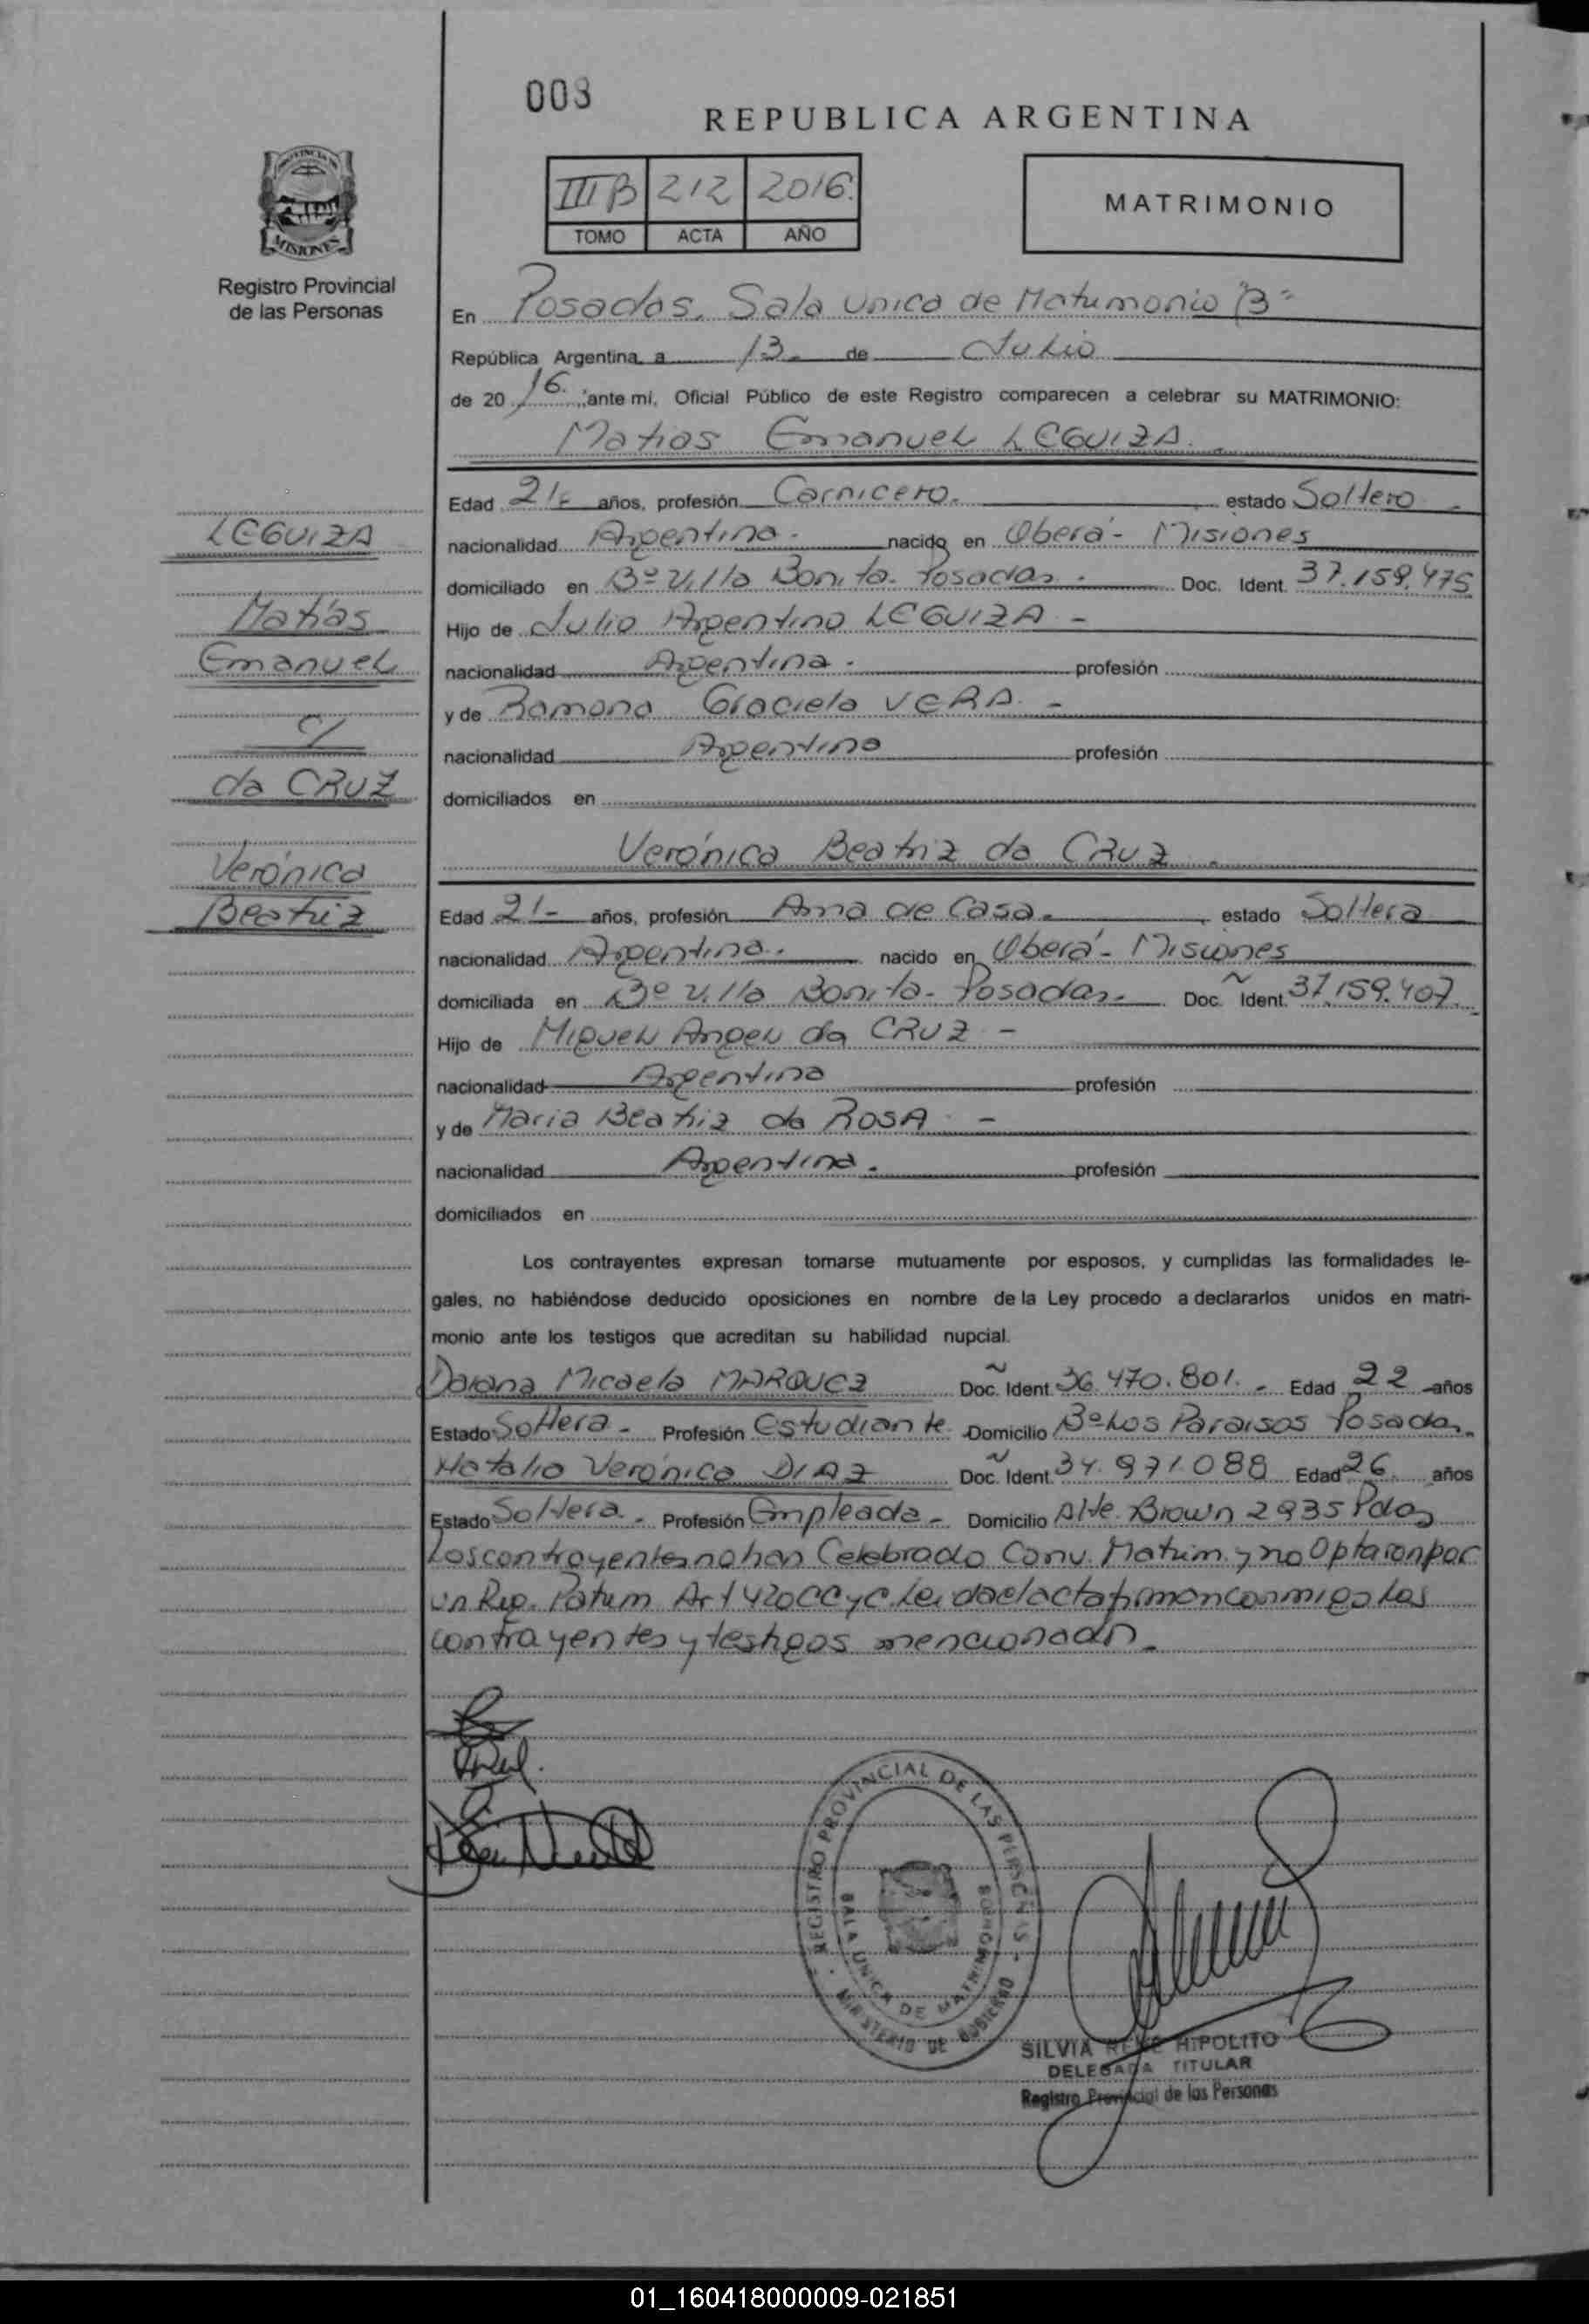 003
REPUBLICA ARGENTINA
III B 212 2016.
TOMO ACTA AÑO
MATRIMONIO
PROVINCIA DE
MISIONES
Registro Provincial
de las Personas
En Posadas. Sala Unica de Matrimonio "B"
República Argentina a 13 de Julio
de 20 16. ante mi, Oficial Público de este Registro comparecen a celebrar su MATRIMONIO:
Matias Emanuel LEGUIZA.
Edad 21- años, profesión Carnicero. estado Soltero -
nacionalidad Argentina. nacido en Oberá - Misiones
domiciliado en Bº Villa Bonita - Posadas. Doc. Ident. 37.159.475
Hijo de Julio Argentino LEGUIZA -
nacionalidad Argentina. profesión
y de Ramona Graciela VERA. -
nacionalidad Argentina profesión
domiciliados en
LEGUIZA
Matías
Emanuel
c/
da CRUZ
Verónica
Beatriz
Verónica Beatriz da CRUZ.
Edad 21- años, profesión Ama de Casa. estado Soltera
nacionalidad Argentina. nacido en Oberá - Misiones
domiciliada en Bº Villa Bonita - Posadas. Doc. Ident. 37.159.407.
Hijo de Miguel Angel da CRUZ -
nacionalidad Argentina profesión
y de Maria Beatriz da ROSA -
nacionalidad Argentina. profesión
domiciliados en
Los contrayentes expresan tomarse mutuamente por esposos, y cumplidas las formalidades le-
gales, no habiéndose deducido oposiciones en nombre de la Ley procedo a declararlos unidos en matri-
monio ante los testigos que acreditan su habilidad nupcial.
Daiana Micaela MARQUEZ Doc. Ident 36.470.801. - Edad 22 años
Estado Soltera - Profesión Estudiante Domicilio Bº Los Paraisos Posadas.
Natalia Verónica DIAZ Doc. Ident 34.971.088 Edad 26 años
Estado Soltera. - Profesión Empleada - Domicilio Alte. Brown 2935 Pdas
Los contrayentes no han Celebrado Conv. Matrim. y no Optaron por
un Reg. Patrim Art 420 CC y C. Leida el acta firman conmigo los
contrayentes y testigos mencionados.
REGISTRO PROVINCIAL DE LAS PERSONAS
SALA UNICA DE MATRIMONIOS
MINISTERIO DE GOBIERNO
SILVIA HIPOLITO
DELEGADA TITULAR
Registro Provincial de las Personas
01_160418000009-021851